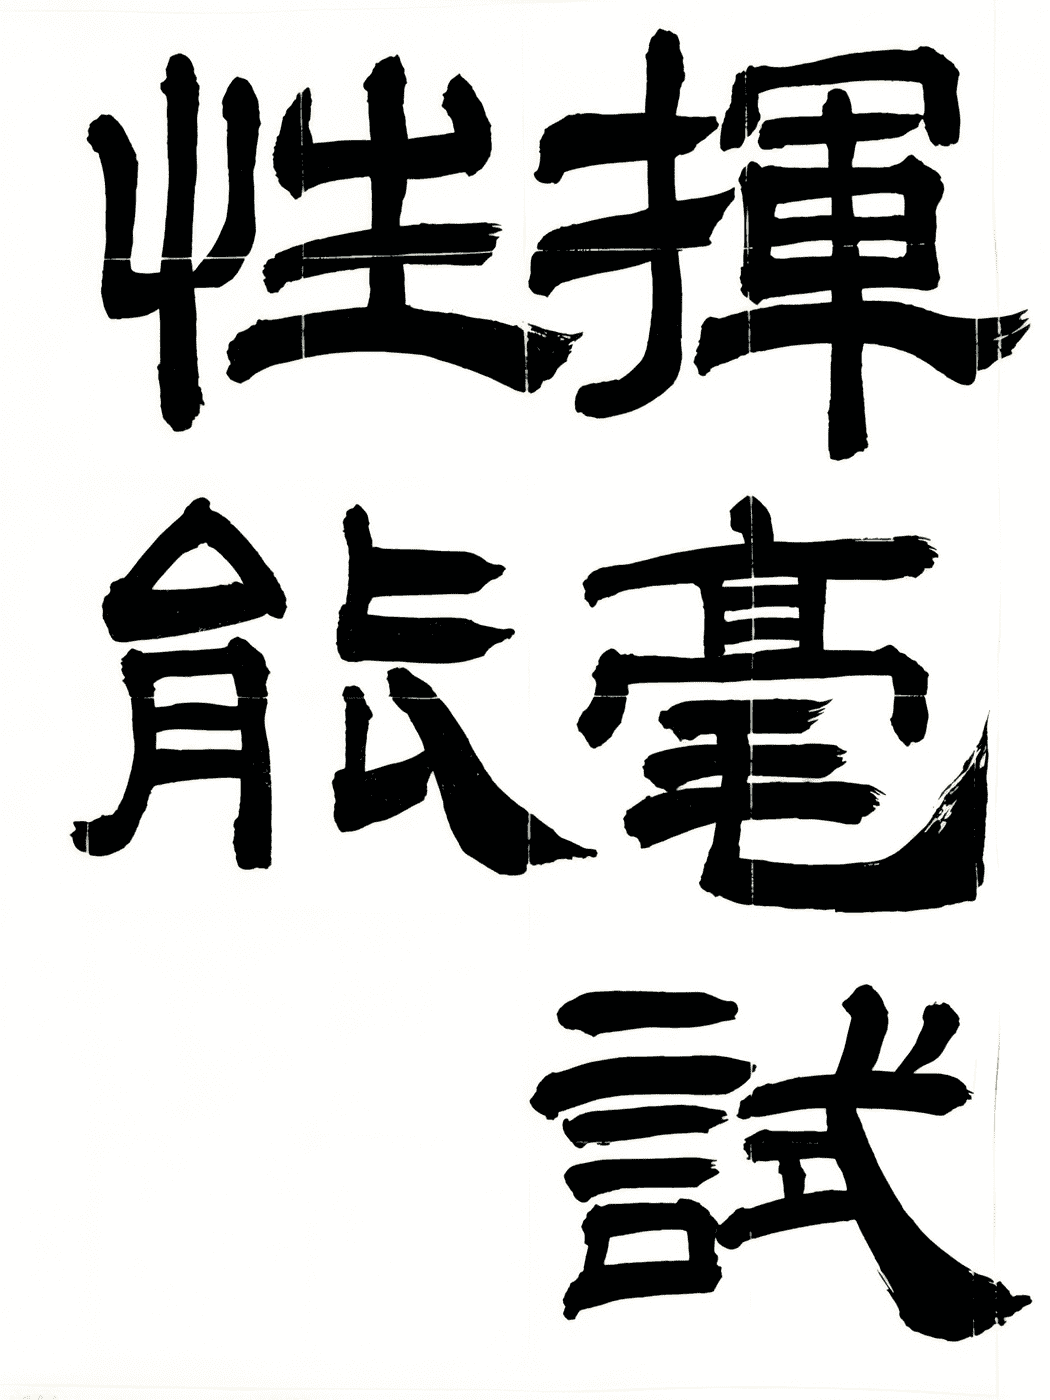 揮毫試
性能